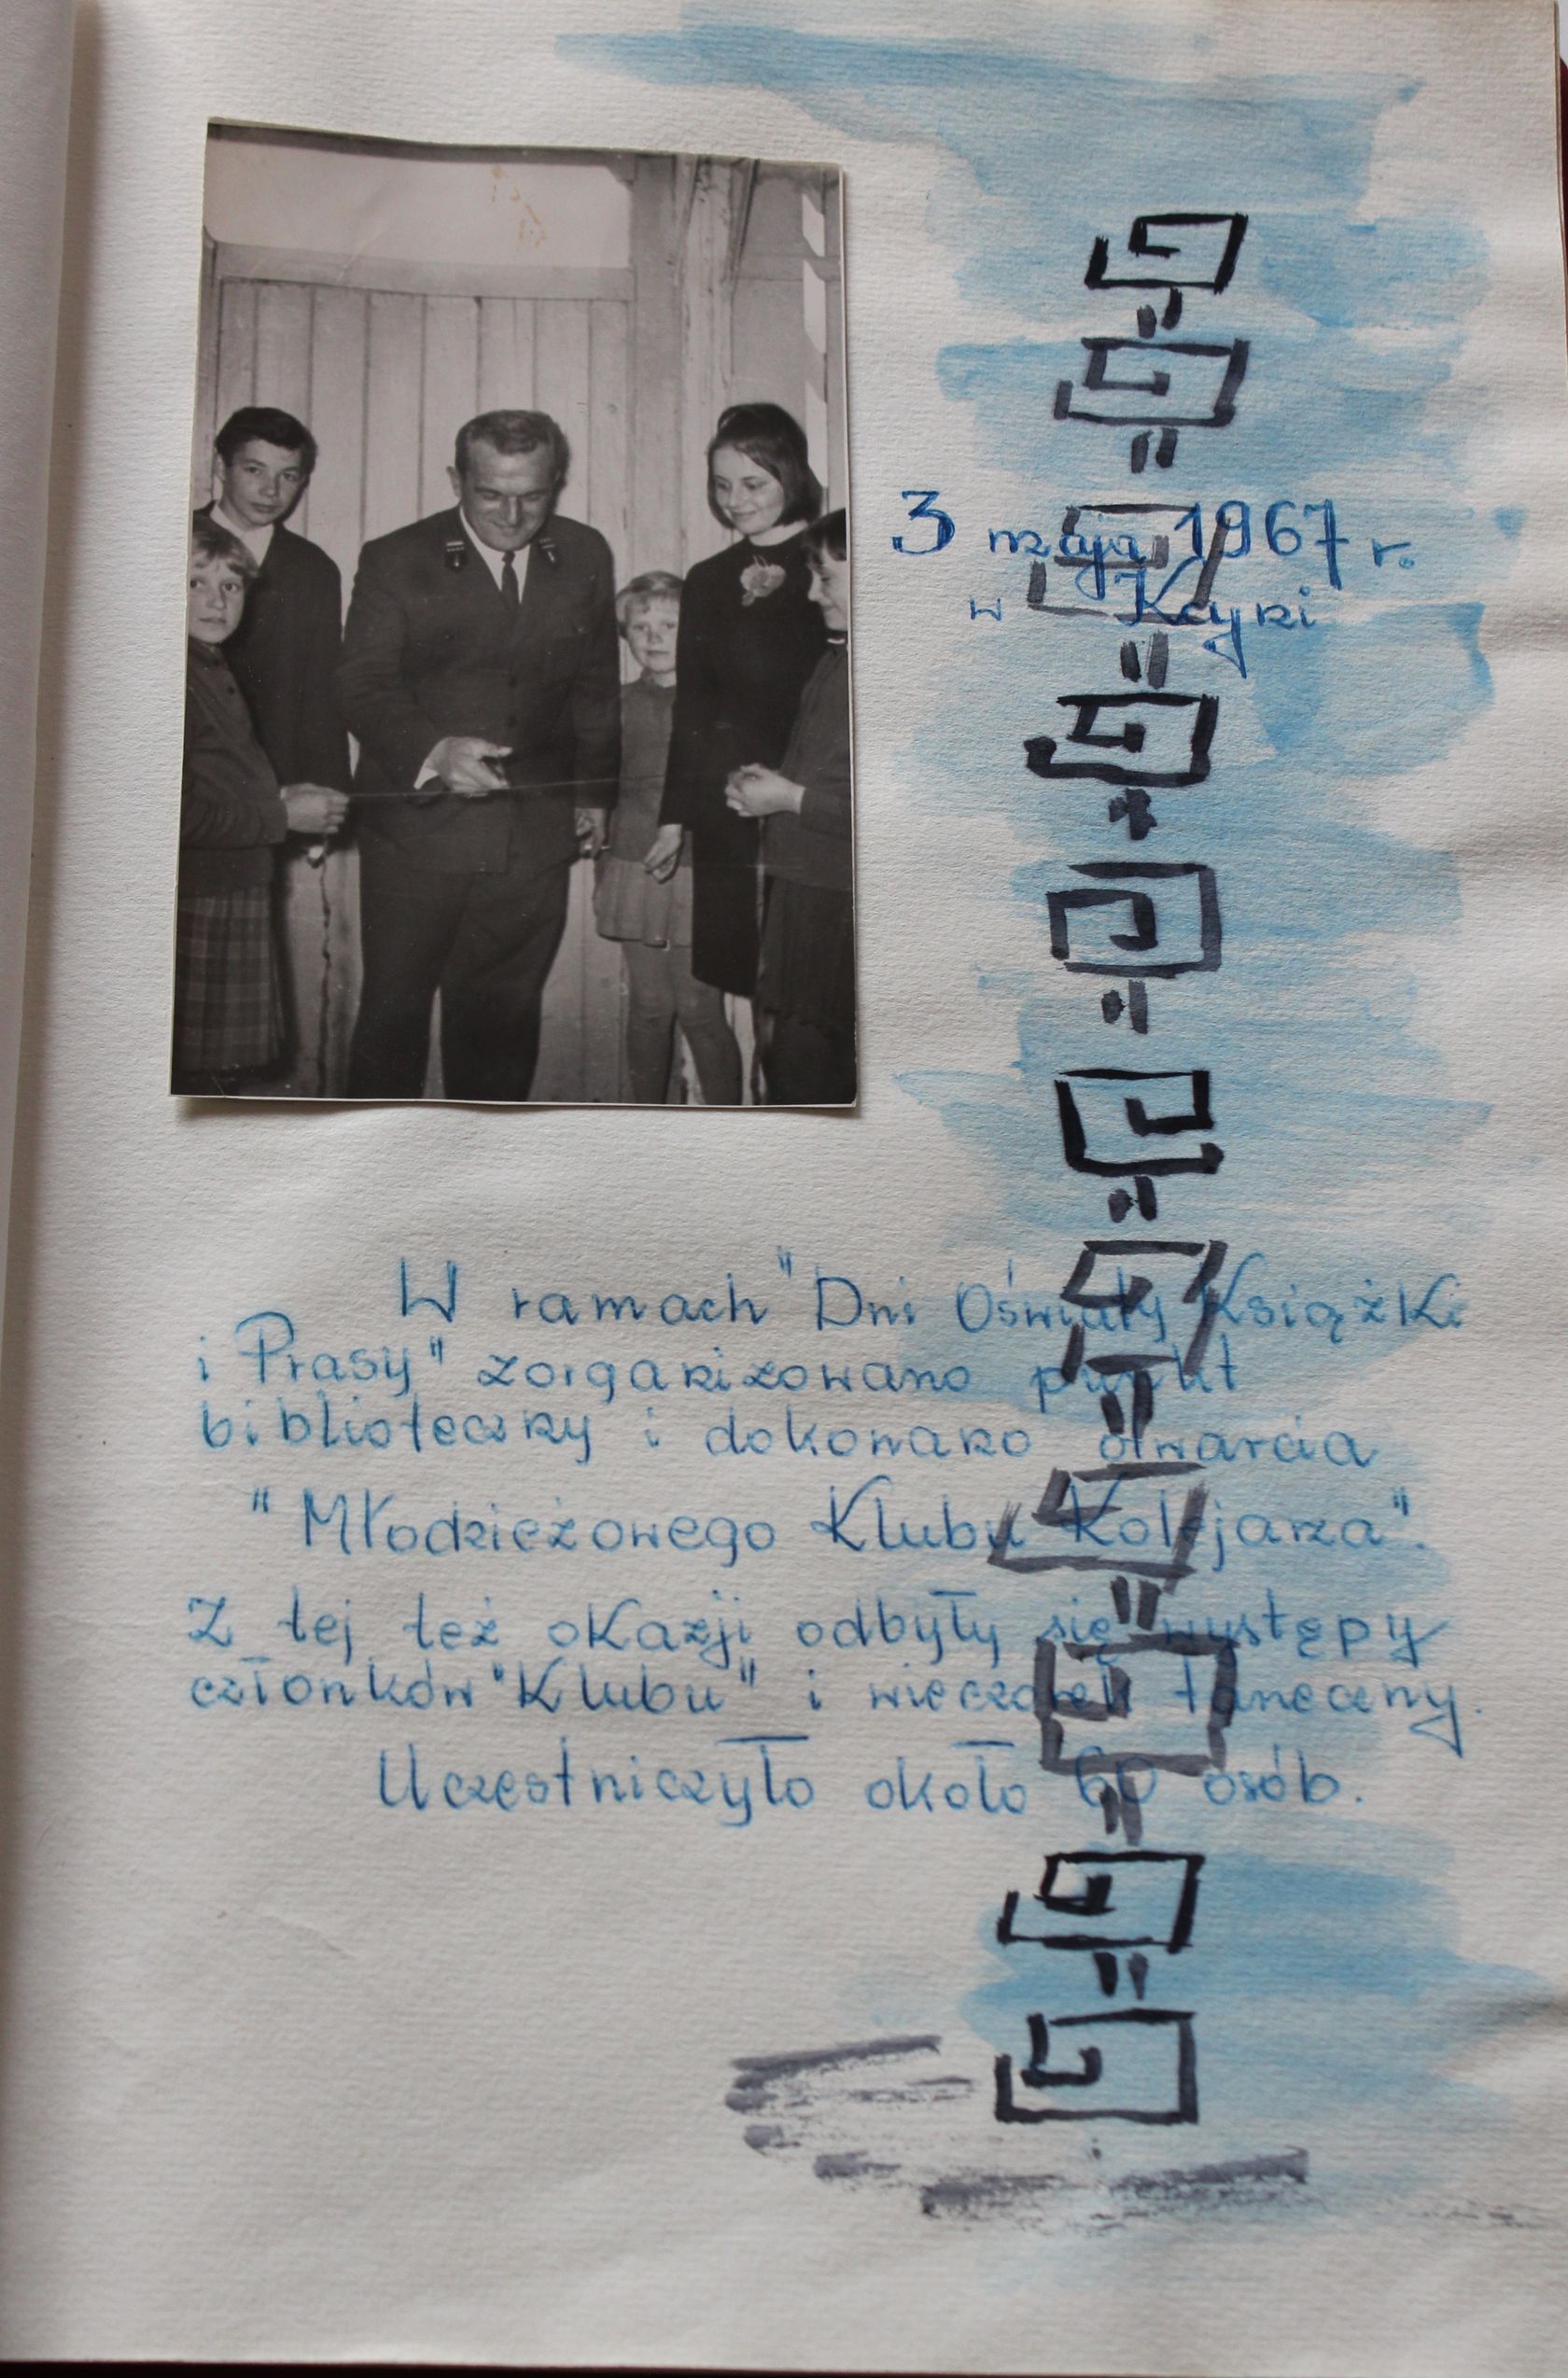 3 maja 1967 r.
w Kcyni
W ramach "Dni Oświaty Książki
i Prasy" zorganizowano punkt
biblioteczny i dokonano otwarcia
"Młodzieżowego Klubu Kolejarza".
Z tej też okazji odbyły się występy
członków "Klubu" i wieczorek taneczny.
Uczestniczyło około 60 osób.